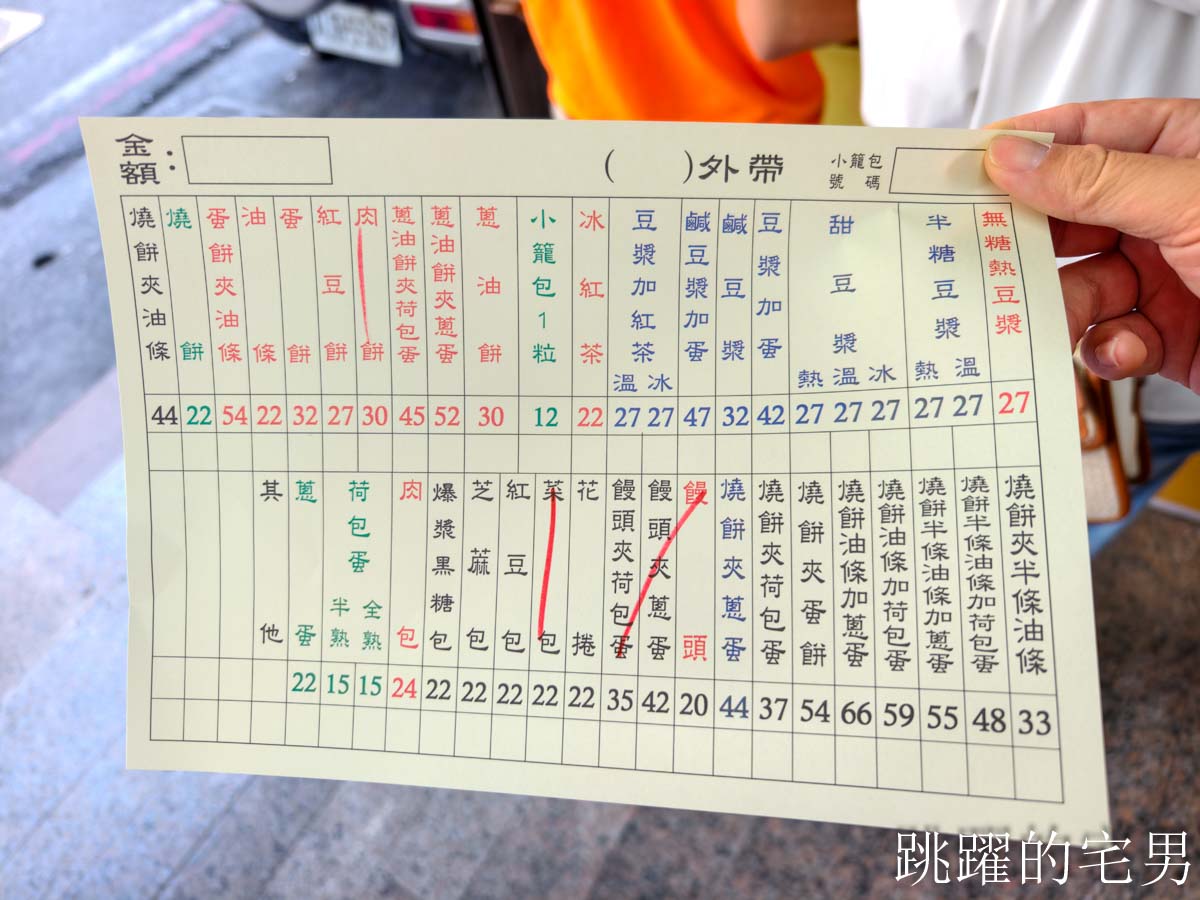 金額：
( )外帶
小籠包號碼
無糖熱豆漿 27
半糖豆漿 溫 27 熱 27
甜豆漿 冰 27 溫 27 熱 27
豆漿加蛋 42
鹹豆漿 32
鹹豆漿加蛋 47
豆漿加紅茶 冰 27 溫 27
冰紅茶 22
小籠包1粒 12
蔥油餅 30
蔥油餅夾蔥蛋 52
蔥油餅夾荷包蛋 45
肉餅 30
紅豆餅 27
蛋餅 32
油條 22
蛋餅夾油條 54
燒餅 22
燒餅夾油條 44
燒餅夾半條油條 33
燒餅半條油條加荷包蛋 48
燒餅半條油條加蔥蛋 55
燒餅油條加荷包蛋 59
燒餅油條加蔥蛋 66
燒餅夾蛋餅 54
燒餅夾荷包蛋 37
燒餅夾蔥蛋 44
饅頭 20
饅頭夾蔥蛋 42
饅頭夾荷包蛋 35
花捲 22
菜包 22
紅豆包 22
芝麻包 22
爆漿黑糖包 22
肉包 24
荷包蛋 全熟 15 半熟 15
蔥蛋 22
其他
跳躍的宅男